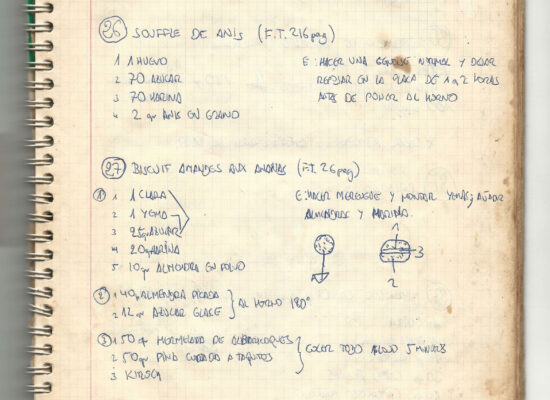 26 SOUFFLE DE ANIS (F.T. 216 pag)
1 1 HUEVO
2 70 AZUCAR
3 70 HARINA
4 2 gr ANIS EN GRANO
E: HACER UNA GENOISE NORMAL Y DEJAR
REPOSAR EN LA PLACA DE 1 a 2 HORAS
ANTES DE PONER AL HORNO
27 BISCUIT AMANDES AUX ANANAS (F.T. 26 pag)
1 1 1 CLARA
2 1 YEMA
3 25 gr AZUCAR
4 20 gr HARINA
5 10 gr ALMENDRA EN POLVO
E: HACER MERENGUE Y MONTAR YEMAS; AÑADIR
ALMENDRAS Y HARINA.
1
3
2
2 1 40 gr ALMENDRA PICADA
2 12 gr AZUCAR GLASE
AL HORNO 180°
3 1 50 gr MERMELADA DE ALBARICOQUES
2 50 gr PIÑA CORTADA A TAQUITOS
3 KIRSCH
COCER TODO 5 MINUTOS